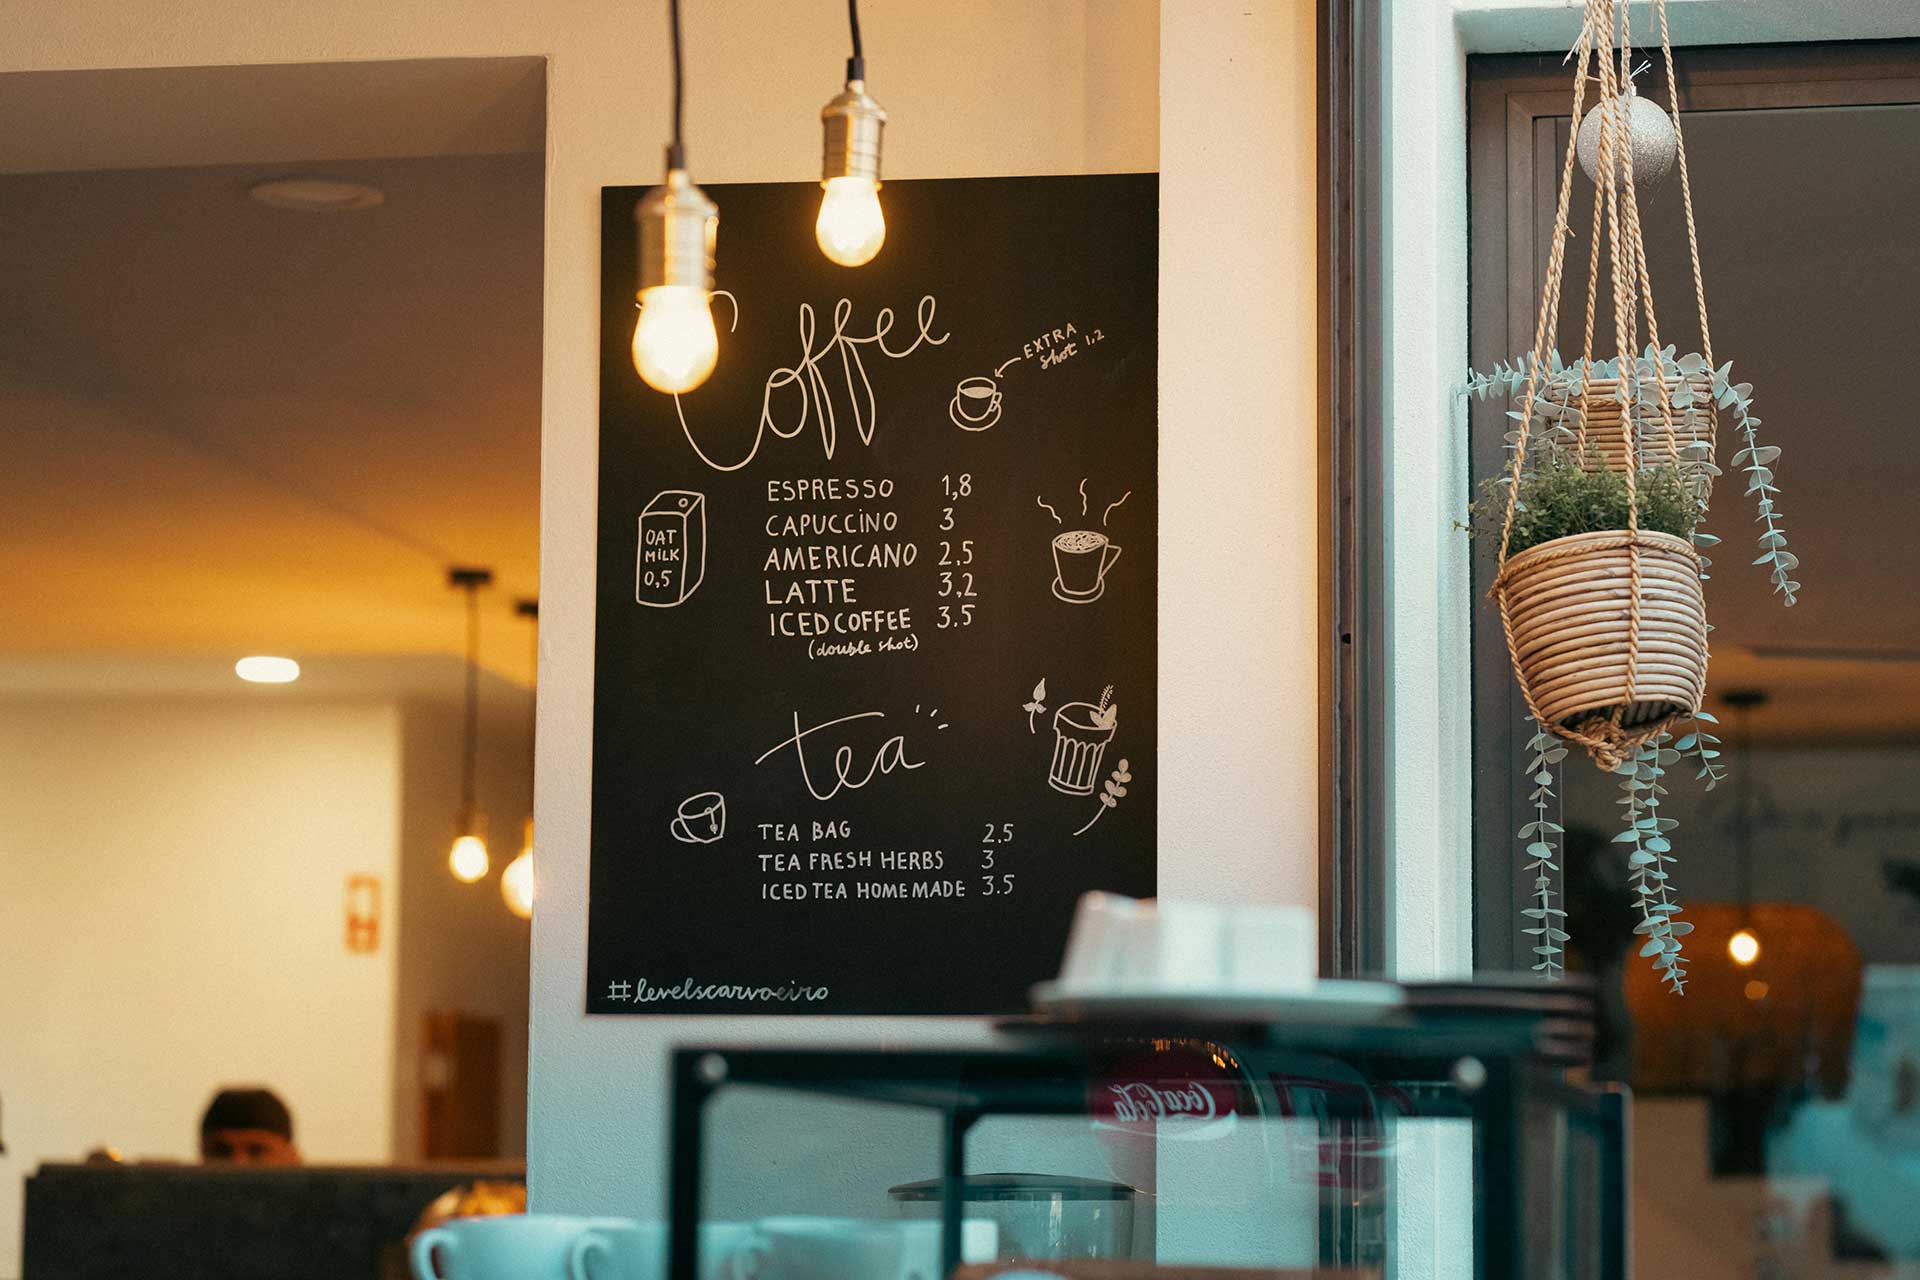 Coffee
EXTRA
shot 1,2
ESPRESSO 1,8
CAPUCCiNO 3
AMERICANO 2,5
LATTE 3,2
ICED COFFEE 3.5
(double shot)
OAT
MiLK
0,5
tea
TEA BAG 2,5
TEA FRESH HERBS 3
ICED TEA HOMEMADE 3.5
#levelscarvoeiro
Coca-Cola